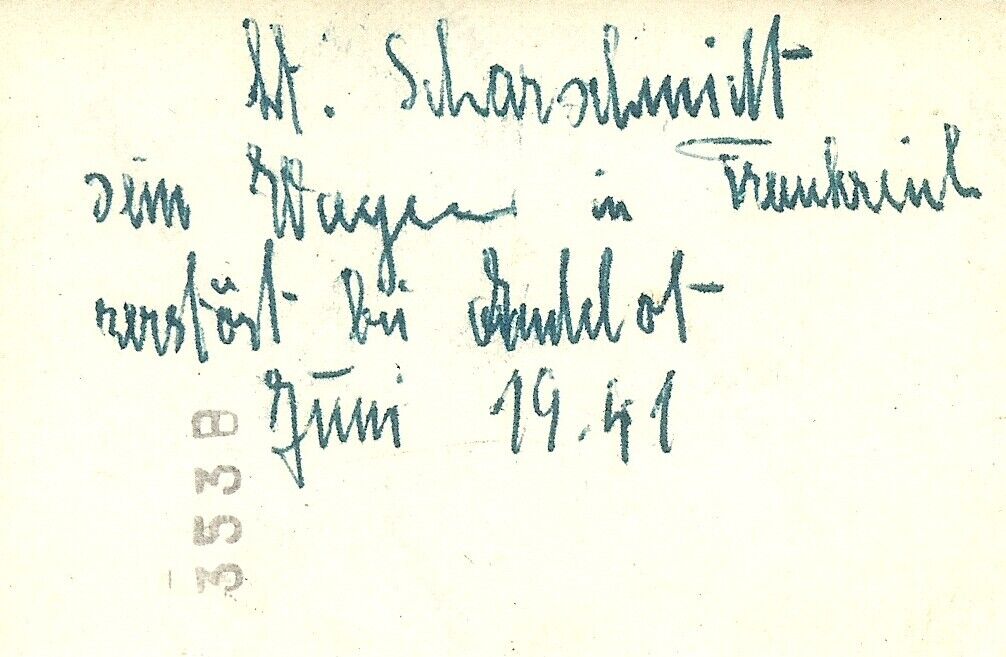 Lt. Scharschmidt
sein Wagen in Frankreich
zerstört bei Andelot
Juni 19.41
353B